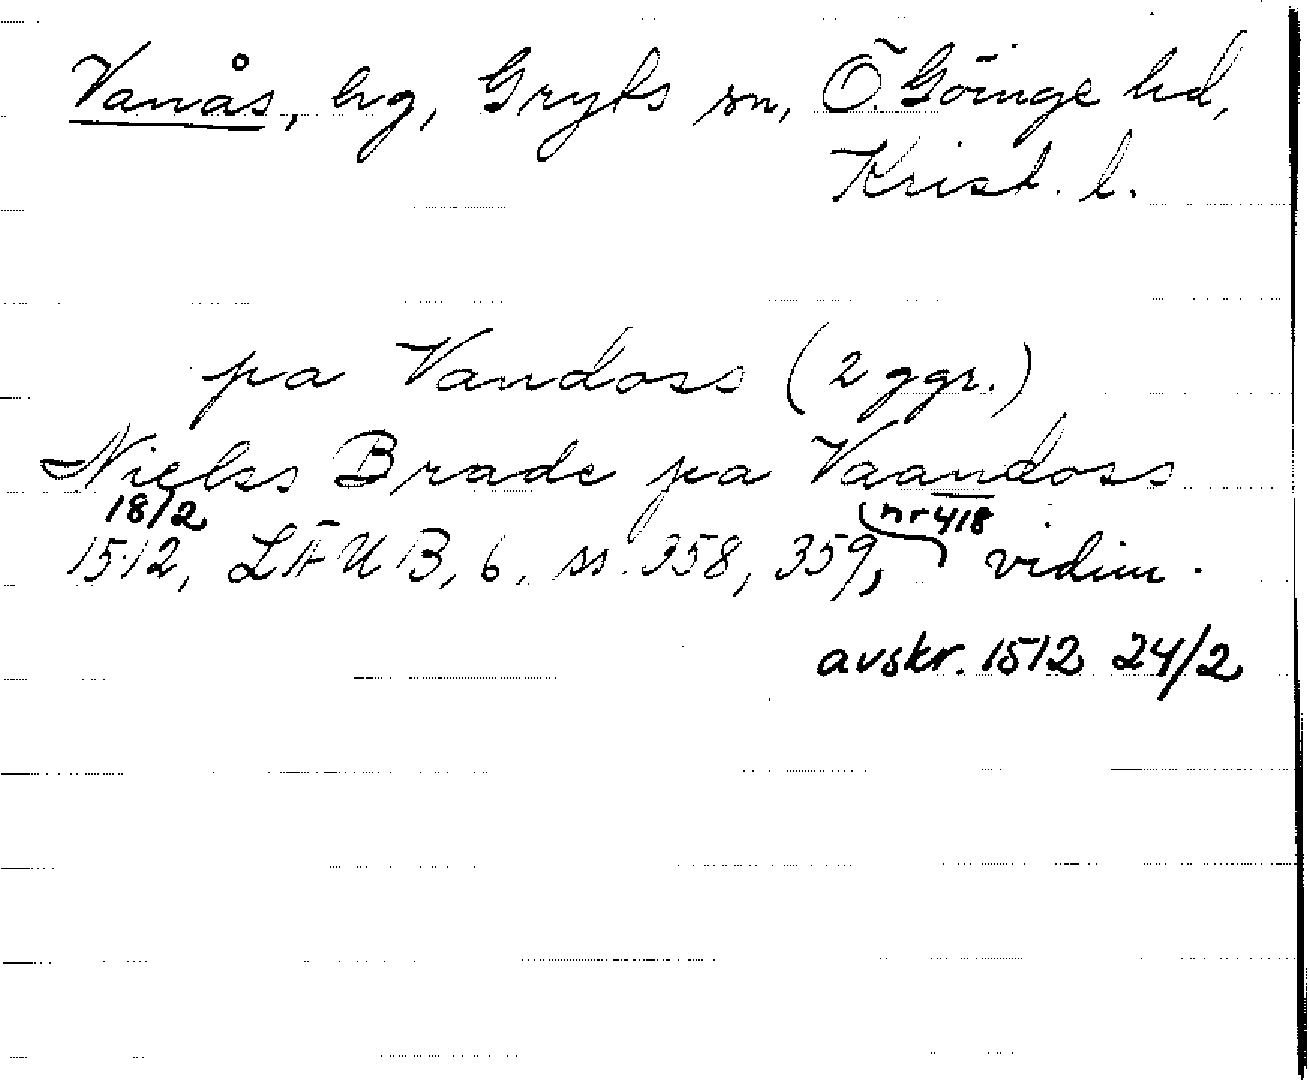 Vanås, hg, Gryts sn, Ö. Göinge hd,
Krist. l.
pa Vandoss (2 ggr.)
Nielss Brade pa Vaandoss
18/2 nr 418
1512, LÄUB, 6, ss. 358, 359, vidim.
avskr. 1512 24/2